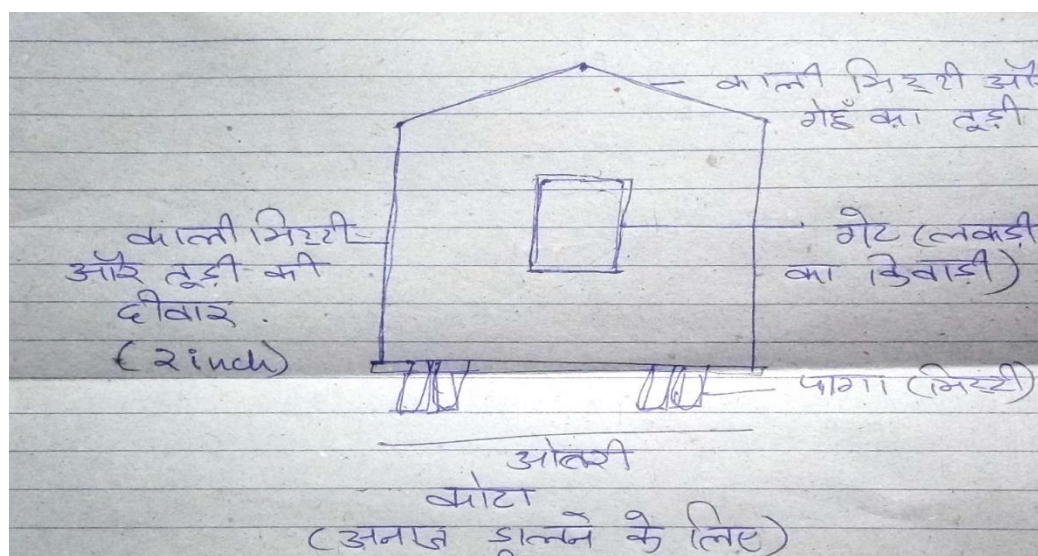 काली मिट्टी और
गेहूँ का तूड़ी
काली मिट्टी
और तूड़ी की
दीवार
(2 inch)
गेट (लकड़ी
का किवाड़ी)
पागा (मिट्टी)
ओबरी
कोटा
(अनाज डालने के लिए)